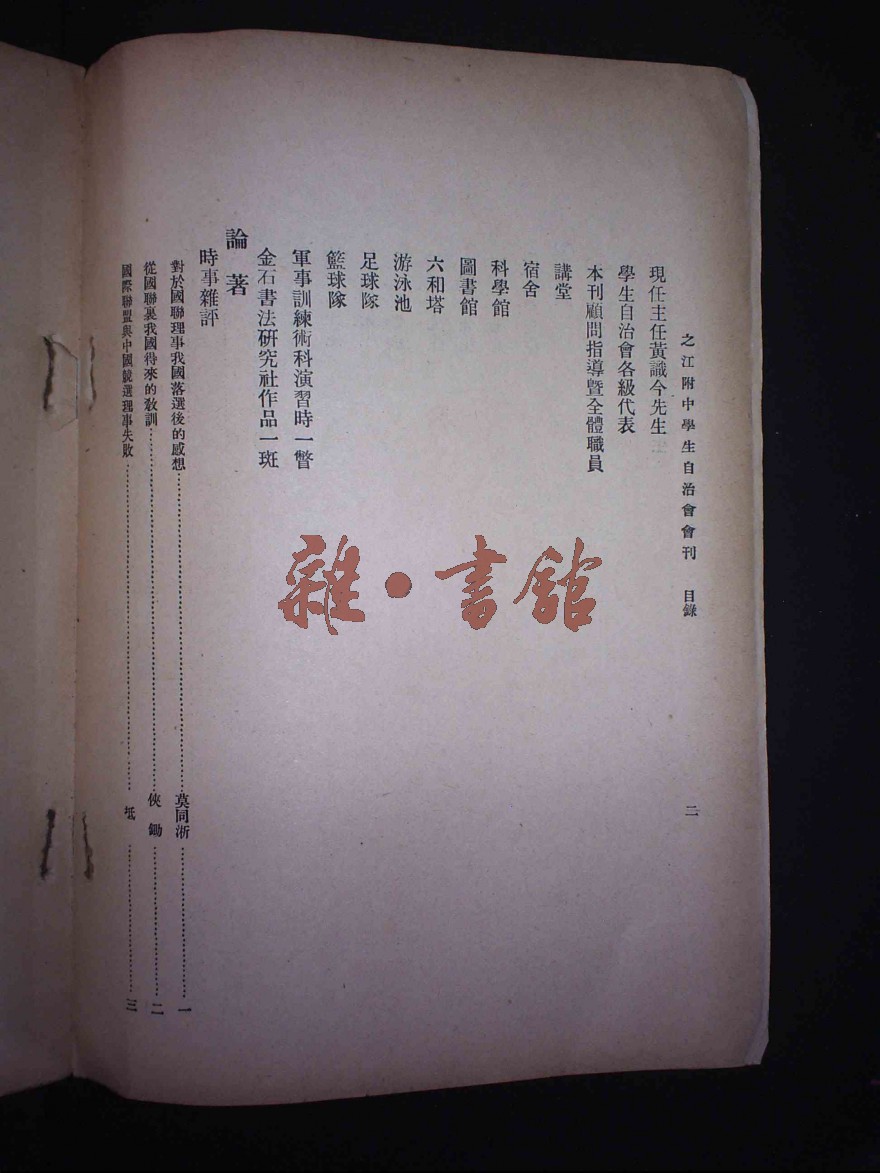 之江附中學生自治會會刊 目錄 二
現任主任黃識今先生
學生自治會各級代表
本刊顧問指導暨全體職員
講堂
宿舍
科學館
圖書館
六和塔
游泳池
足球隊
籃球隊
軍事訓練術科演習時一瞥
金石書法研究社作品一斑
論著
時事雜評
對於國聯理事我國落選後的感想⋯⋯莫同淅⋯⋯一
從國聯裏我國得來的敎訓⋯⋯俠鋤⋯⋯二
國際聯盟與中國競選理事失敗⋯⋯坻⋯⋯三
雜·書館